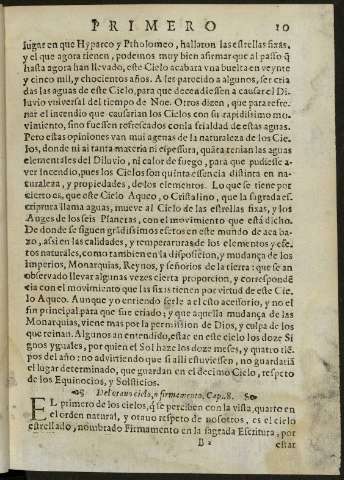 PRIMERO 10
lugar en que Hyparco y Ptholomeo, hallaron las estrellas fixas,
y el que agora tienen, podemos muy bien afirmar que al passo q̃
hasta agora han llevado, este Cielo acabara vna buelta en veynte
y cinco mil, y chocientos años. A les parecido a algunos, ser cria
das las aguas de este Cielo, para que decendiessen a causar el Di-
luvio vniversal del tiempo de Noe. Otros dizen, que para refre-
nar el incendio que causarian los Cielos con su rapidissimo mo-
vimiento, sino fuessen refrescados con la frialdad de estas aguas.
Pero estas opiniones van muy agenas de la naturaleza de los Cie-
los, donde ni ai tanta materia ni espessura, quãta tenian las aguas
elementales del Diluvio, ni calor de fuego, para que pudiesse a-
ver Incendio, pues los Cielos son quinta essencia distinta en na-
turaleza, y propiedades, de los elementos. Lo que se tiene por
cierto es, que este Cielo Aqueo, o Cristalino, que la sagrada es-
criptura llama aguas, mueve al Cielo de las estrellas fixas, y los
Auges de los seis Planetas, con el movimiento que está dicho.
De donde se siguen grãdissimos efetos en este mundo de aca ba-
xo, assi en las calidades, y temperaturas de los elementos y efe-
tos naturales, como tambien en la disposicion, y mudança de los
Imperios, Monarquias, Reynos, y señorios de la tierra: que se an
observado llevar algunas vezes cierta proporcion, y correspondẽ
cia con el movimiento que las fixas tienen por virtud de este Cie
lo Aqueo. Aunque yo entiendo serle a el esto accessorio, y no el
fin principal para que fue criado; y que aquella mudança de las
Monarquias, viene mas por la permission de Dios, y culpa de los
que reinan. Algunos an entendido, estar en este cielo los doze Si
gnos yguales, por quien el Sol haze los doze meses, y quatro tiẽ
pos del año: no advirtiendo que si alli estuviessen, no guardariã
el lugar determinado, que guardan en el decimo Cielo, respeto
de los Equinocios, y Solsticios.
Del otavo cielo, o firmamento, Cap. 8.
EL primero de los cielos, q̃ se perciben con la vista, quarto en
el orden natural, y otavo respeto de nosotros, es el cielo
estrellado, nombrado Firmamento en la sagrada Escritura, por
B 2 estar